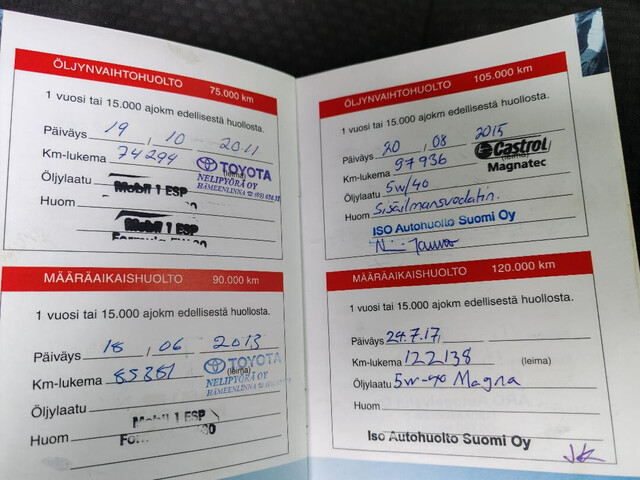 ÖLJYNVAIHTOHUOLTO 75.000 km
1 vuosi tai 15.000 ajokm edellisestä huollosta.
Päiväys 19 / 10 2011
Km-lukema 74294 (leima)
TOYOTA
NELIPYÖRÄ OY
HÄMEENLINNA
Öljylaatu Mobil 1 ESP
Huom
Mobil 1 ESP
MÄÄRÄAIKAISHUOLTO 90.000 km
1 vuosi tai 15.000 ajokm edellisestä huollosta.
Päiväys 18 / 06 2013
Km-lukema 85381 (leima)
TOYOTA
NELIPYÖRÄ OY
HÄMEENLINNA
Öljylaatu
Mobil 1 ESP
Huom
ÖLJYNVAIHTOHUOLTO 105.000 km
1 vuosi tai 15.000 ajokm edellisestä huollosta.
Päiväys 20 08 2015
Km-lukema 97936 (leima)
Castrol
Magnatec
Öljylaatu 5W/40
Huom Sisäilmansuodatin.
ISO Autohuolto Suomi Oy
MÄÄRÄAIKAISHUOLTO 120.000 km
1 vuosi tai 15.000 ajokm edellisestä huollosta.
Päiväys 24.7.17
Km-lukema 122138 (leima)
Öljylaatu 5w-40 Magna
Huom
Iso Autohuolto Suomi Oy